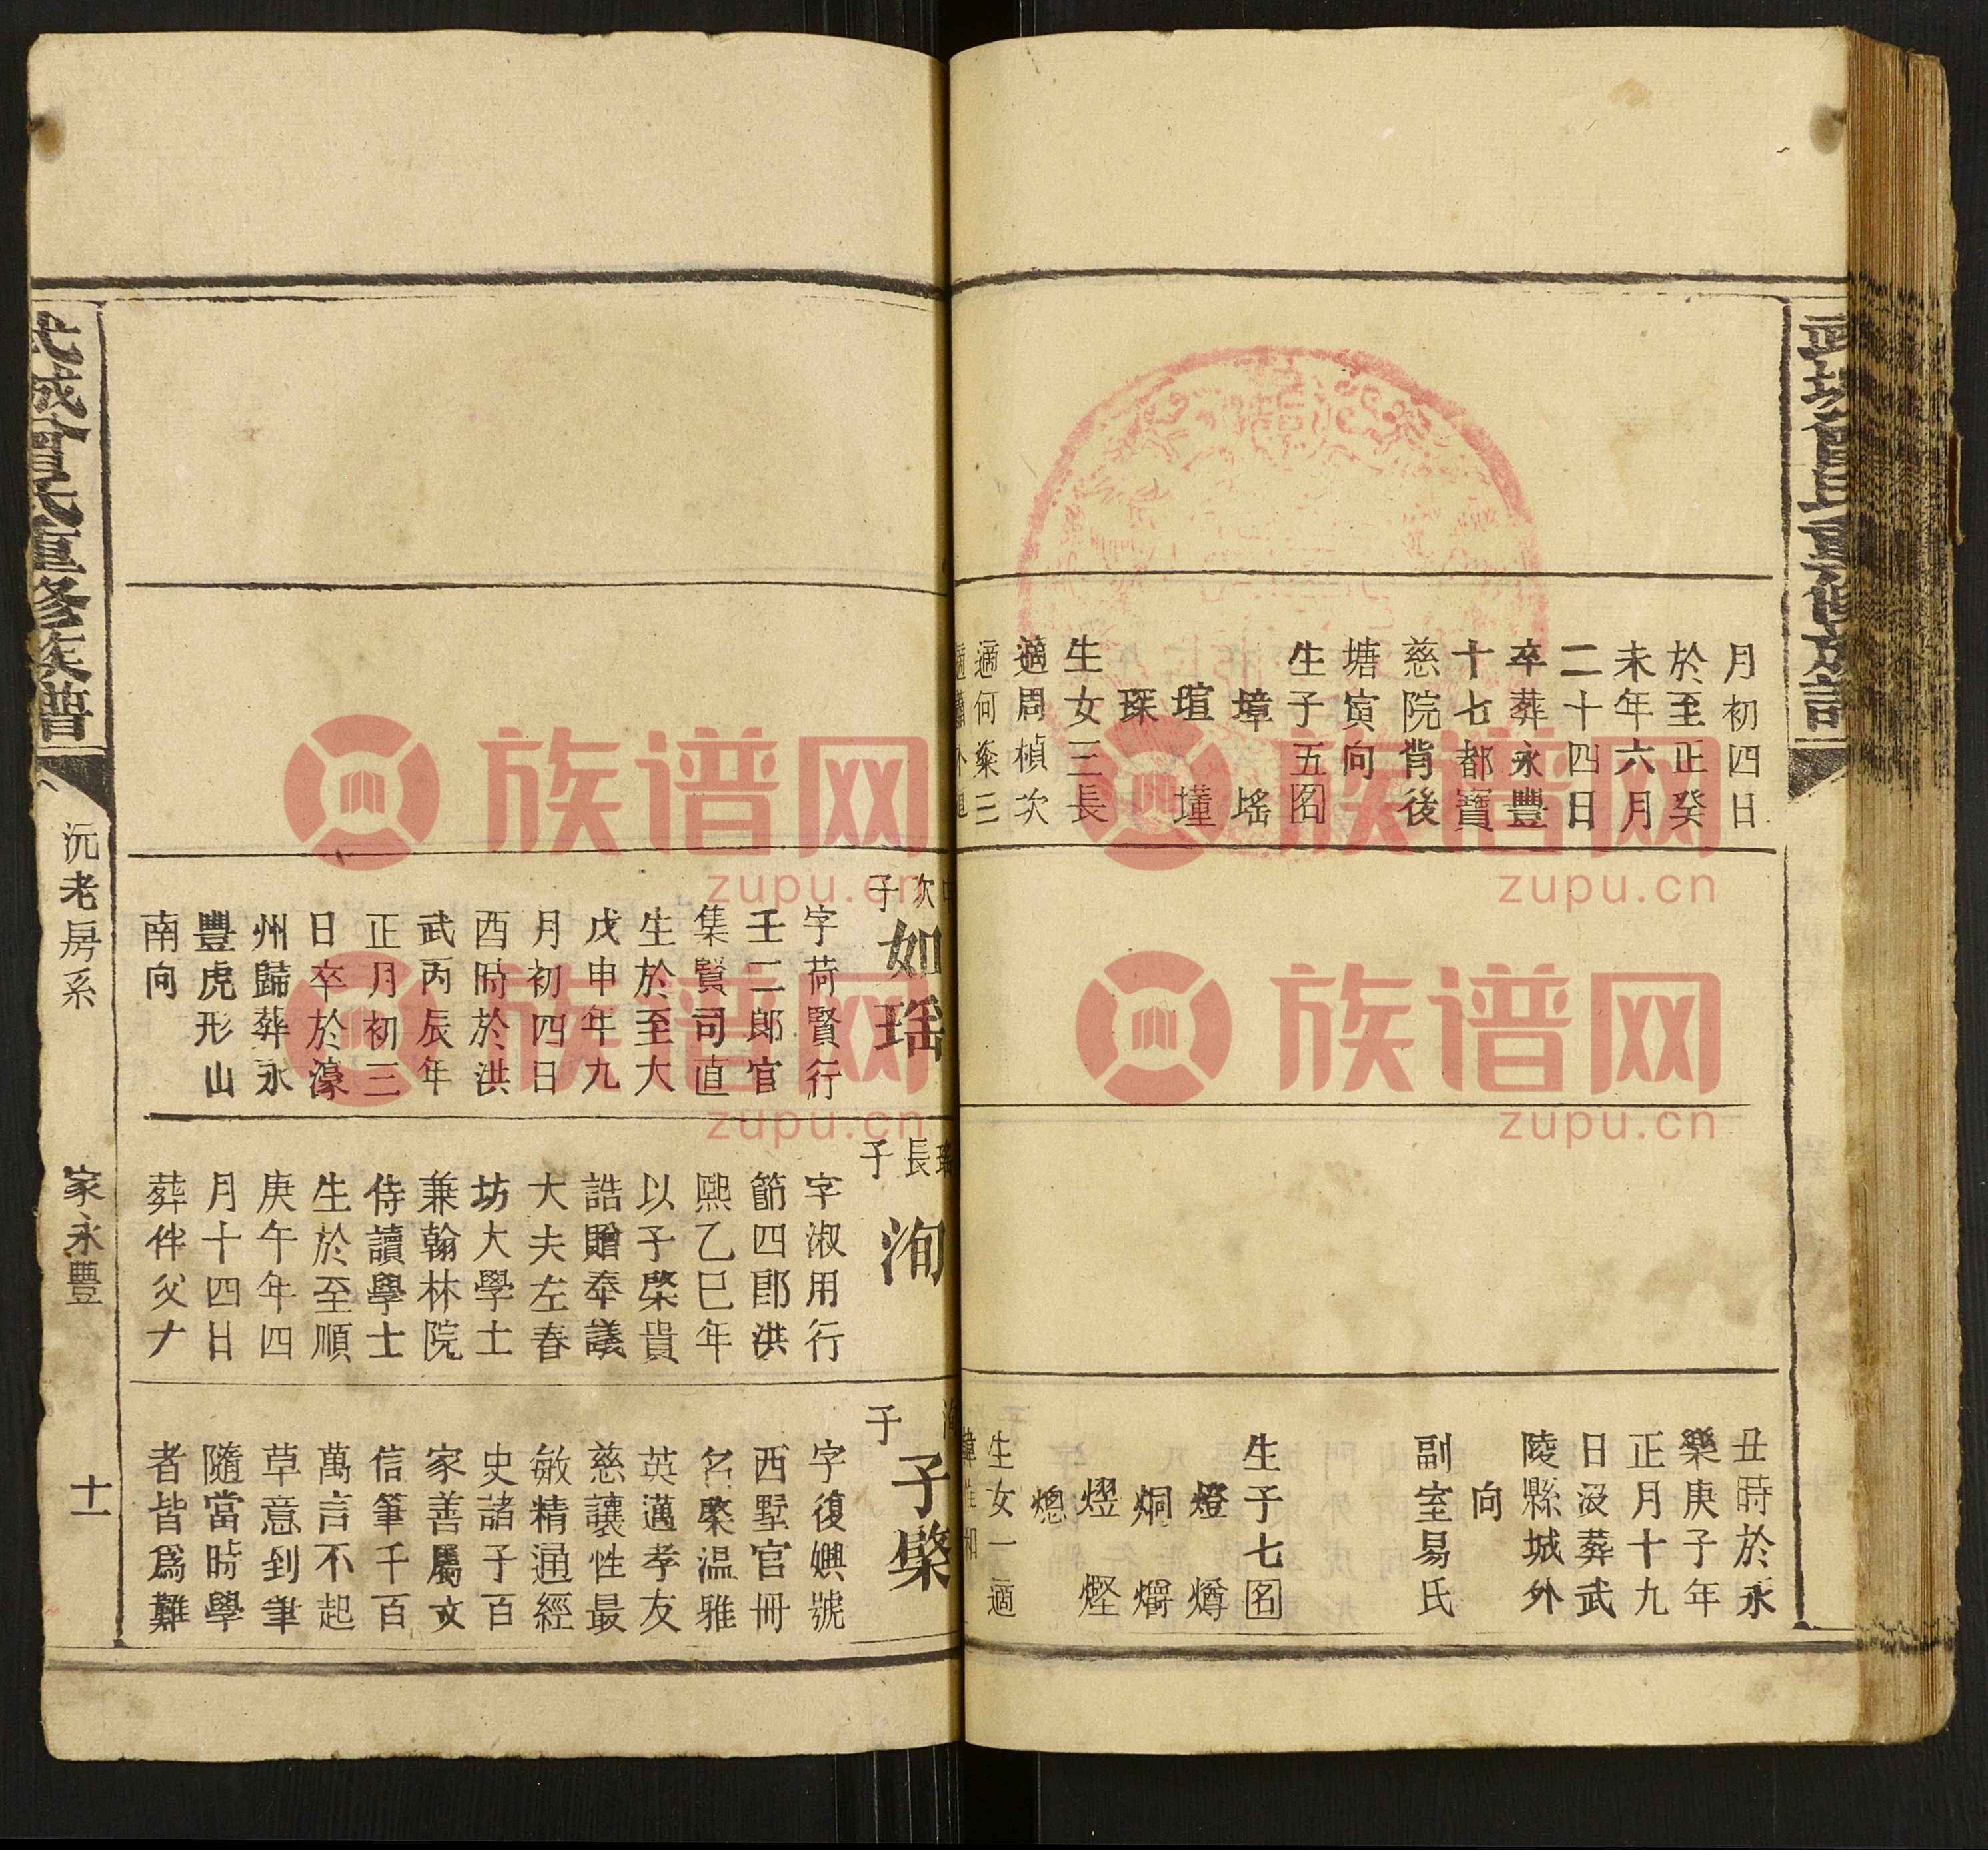 月初四日
於至正癸
未年六月
二十四日
卒葬永豐
十七都寶
慈院背後
塘寅向
生子五图
璋 瑤
瑄 墐
琛
生女三長
適周楨次
適何粢三
丑時於永
樂庚子年
正月十九
日沒葬武
陵縣城外
向
副室易氏
生子七图
燈 燇
炯 爓
熠 㷫
熜
生女一適
次子
如瑶
字荷賢行
壬二郎官
集賢司直
生於至大
戊申年九
月初四日
酉時於洪
武丙辰年
正月初三
日卒於濠
州歸葬永
豐虎形山
南向
長子
洵
字淑用行
節四郎洪
熙乙巳年
以子棨貴
誥贈奉議
大夫左春
坊大學士
兼翰林院
侍讀學士
生於至順
庚午年四
月十四日
葬伴父大
子
子棨
字復嶼號
西墅官冊
名棨溫雅
英邁孝友
慈讓性最
敏精通經
史諸子百
家善屬文
信筆千百
萬言不起
草意到筆
隨當時學
者皆爲難
武城曾氏重修族譜
沅老房系
家永豐
十一
族谱网
zupu.cn
族谱网
zupu.cn
族谱网
zupu.cn
族谱网
zupu.cn